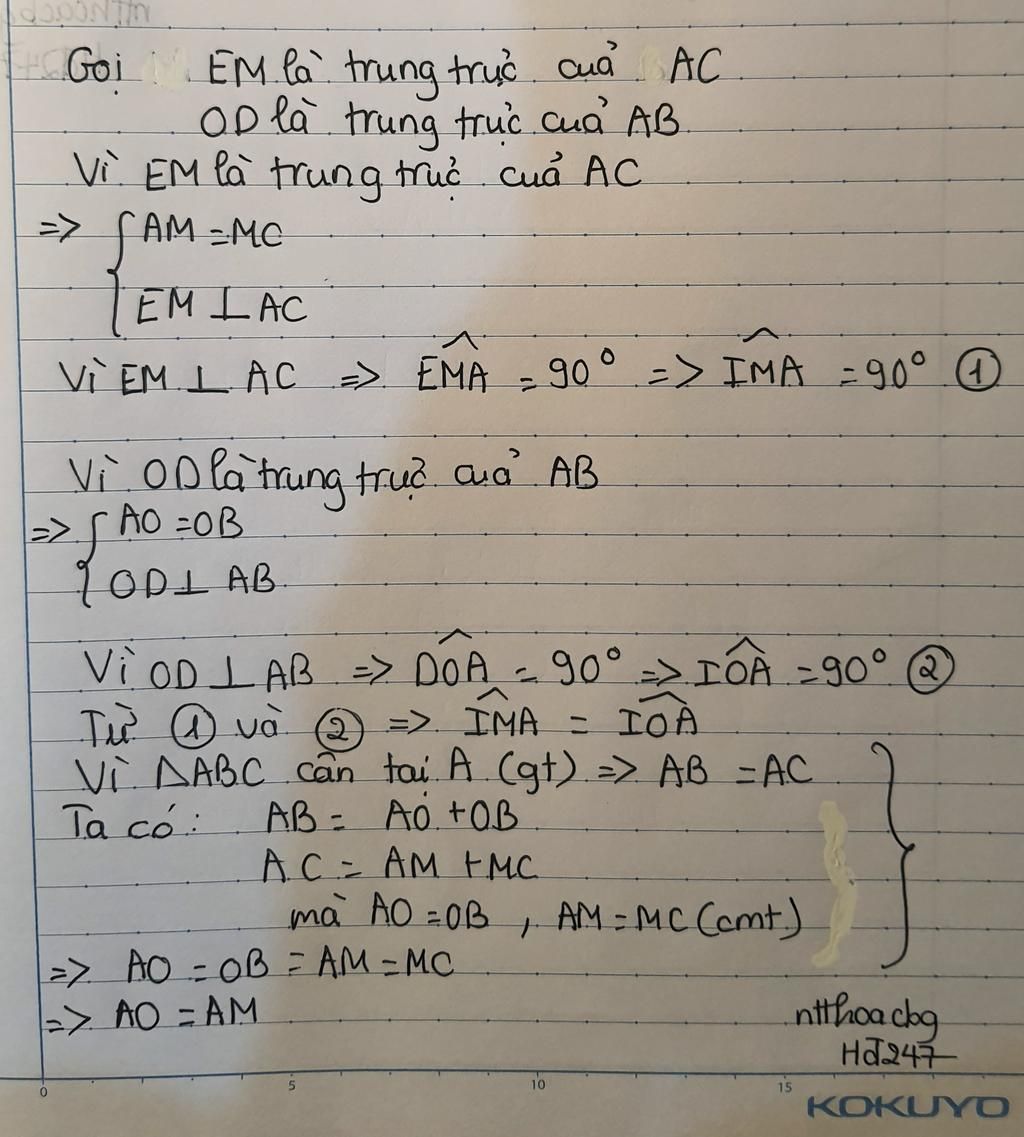 Gọi EM là trung trực của AC
OD là trung trực của AB
Vì EM là trung trực của AC
=> { AM = MC
EM ⊥ AC
Vì EM ⊥ AC => \widehat{EMA} = 90° => \widehat{IMA} = 90° ①
Vì OD là trung trực của AB
=> { AO = OB
OD ⊥ AB
Vì OD ⊥ AB => \widehat{DOA} = 90° => \widehat{IOA} = 90° ②
Từ ① và ② => \widehat{IMA} = \widehat{IOA}
Vì ΔABC cân tại A (gt) => AB = AC
Ta có: AB = AO + OB
AC = AM + MC
mà AO = OB , AM = MC (cmt)
=> AO = OB = AM = MC
=> AO = AM
ntthoacbg
HĐ247
0 5 10 15
KOKUYO